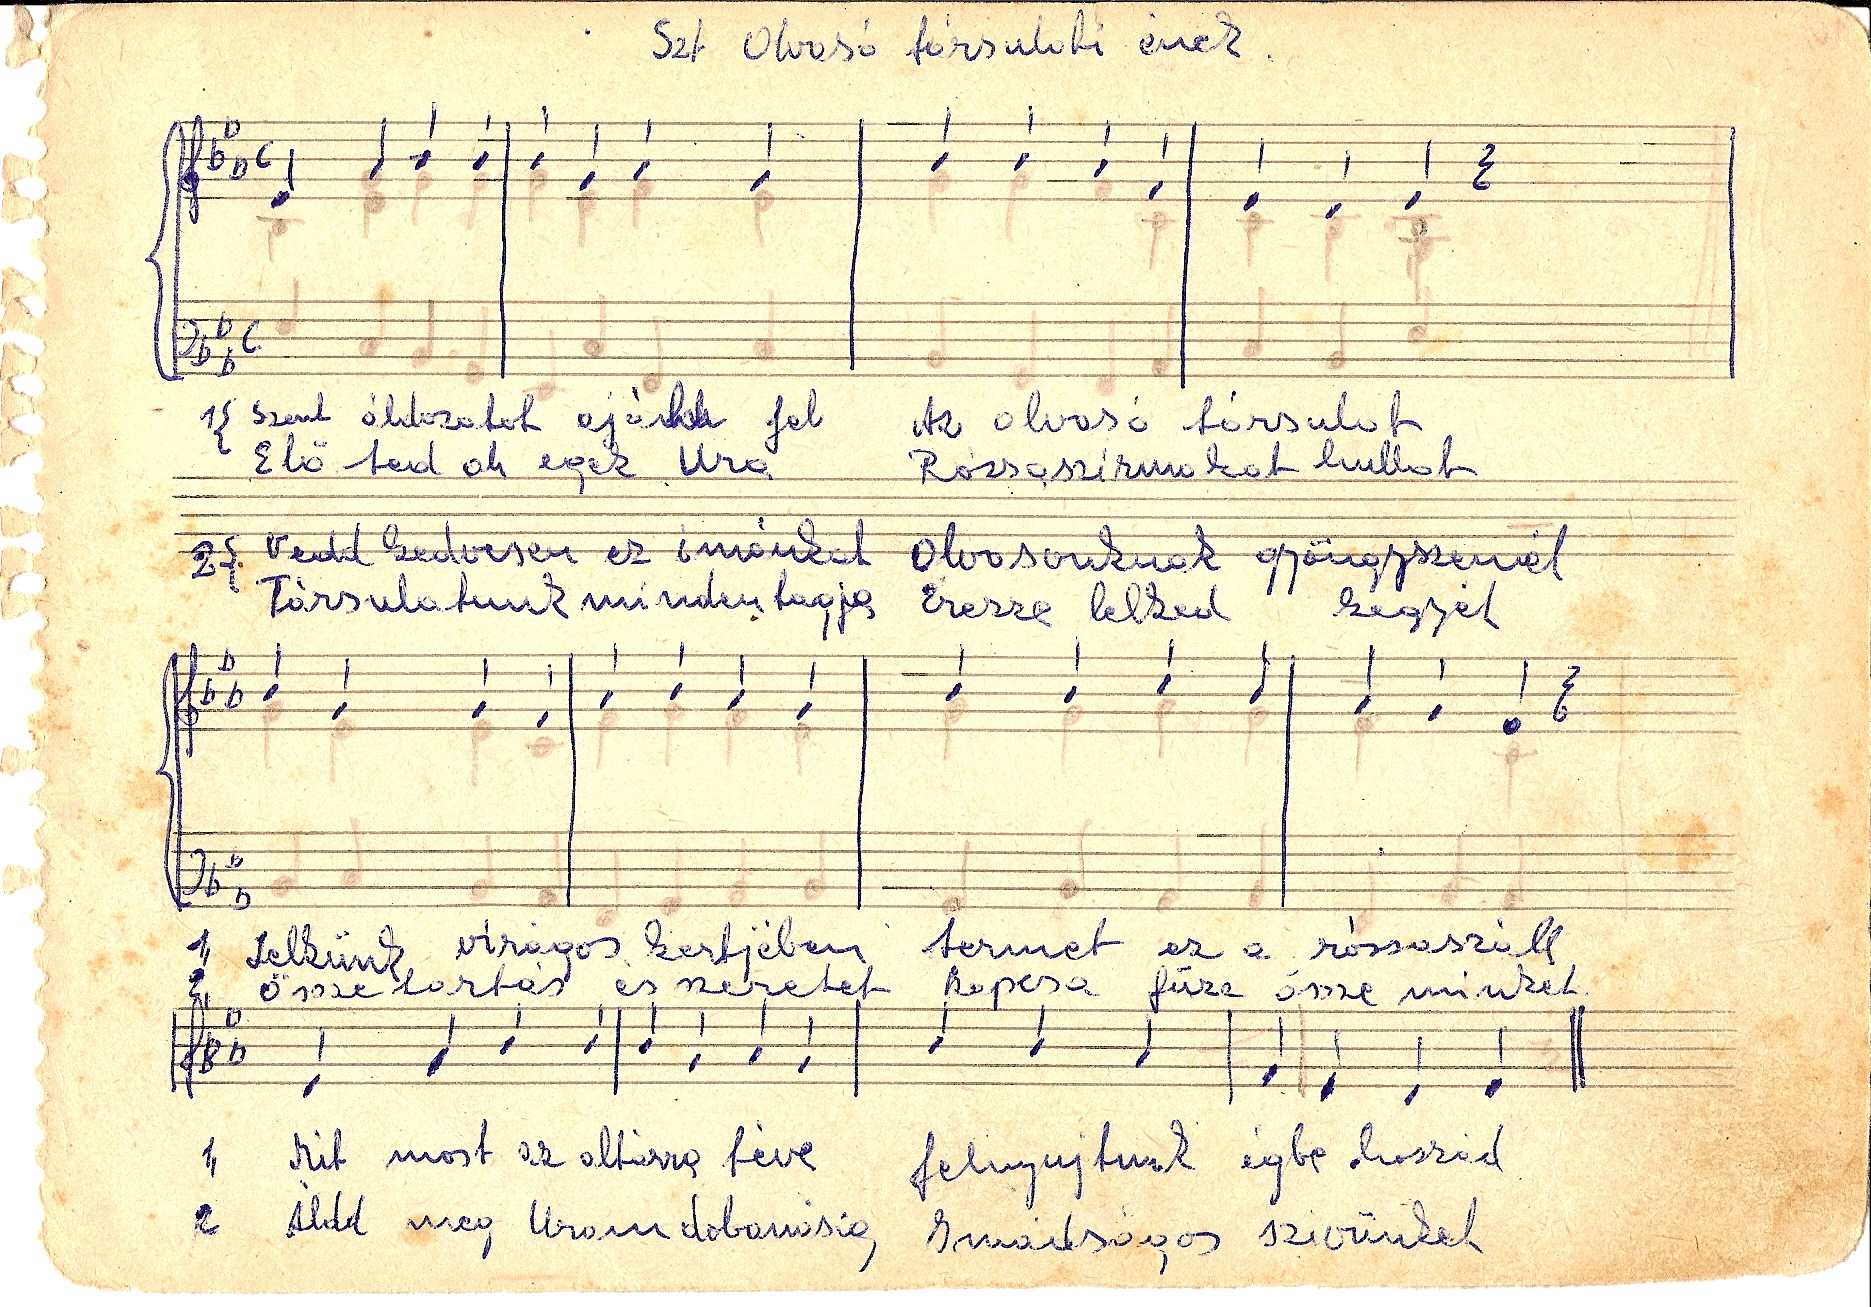 Szt Olvasó társulati ének.
1 Szent áldozatot ajánl fel Az olvasó társulat
Elő ted oh egek Ura Rózsaszirmokat hullat
2 Vedd kedvesen ez imánkat Olvasonknak gyöngyszemét
Társulatunk minden tagja Érezze lelked kegyét
1 Lelkünk virágos kertjében termet ez a rózsaszáll
2 Össze tartás és szeretet Kapcsa fűze össze minket
1, Kit most az altárra téve felnyujtunk égbe hozzád
2 Áldd meg Uram dobanásig Imádságos szivünket